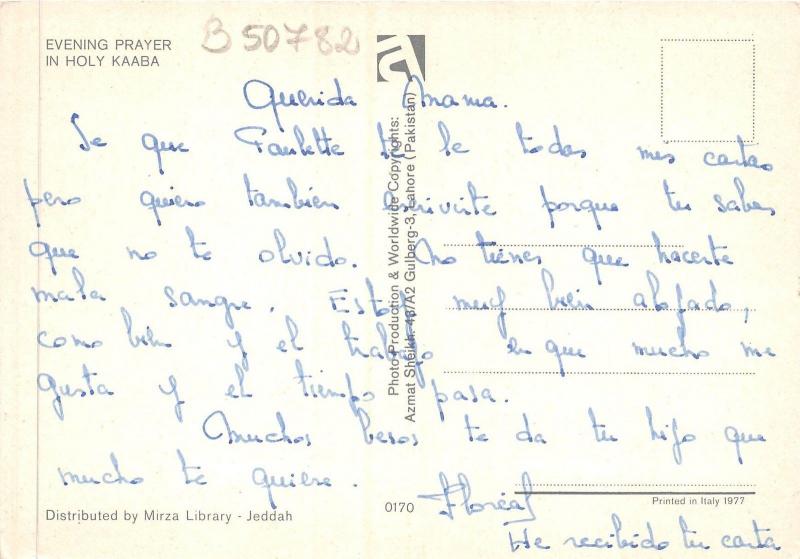 EVENING PRAYER
IN HOLY KAABA
B 50782
Querida Mama.
Se que Paulette te le todas mis cartas
pero quiero también escrivirte porque tu sabes
que no te olvido. No tienes que hacerte
mala sangre. Estoy muy bien alojado,
como bien y el trabajo en que mucho me
gusta y el tiempo pasa.
Muchos besos te da tu hijo que
mucho te quiere.
Floréal
He recibido tu carta
Photo Production & Worldwide Copyrights:
Azmat Sheikh. 43/A2 Gulberg-3, Lahore (Pakistan)
Distributed by Mirza Library - Jeddah
0170
Printed in Italy 1977